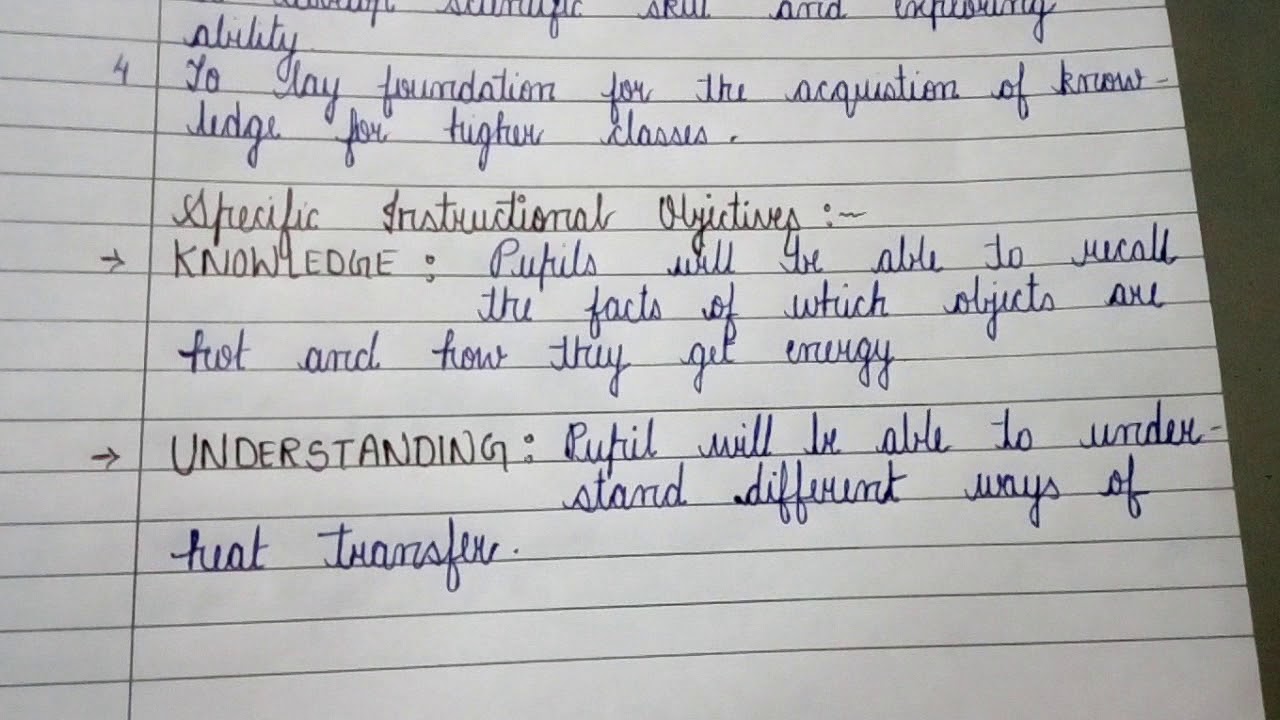 scientific skill and exploring
ability
4 To lay foundation for the acquistion of know-
ledge for higher classes.
Specific Instructional Objectives :~
→ KNOWLEDGE : Pupils will be able to recall
the facts of which objects are
hot and how they get energy
→ UNDERSTANDING : Pupil will be able to under-
stand different ways of
heat transfer.